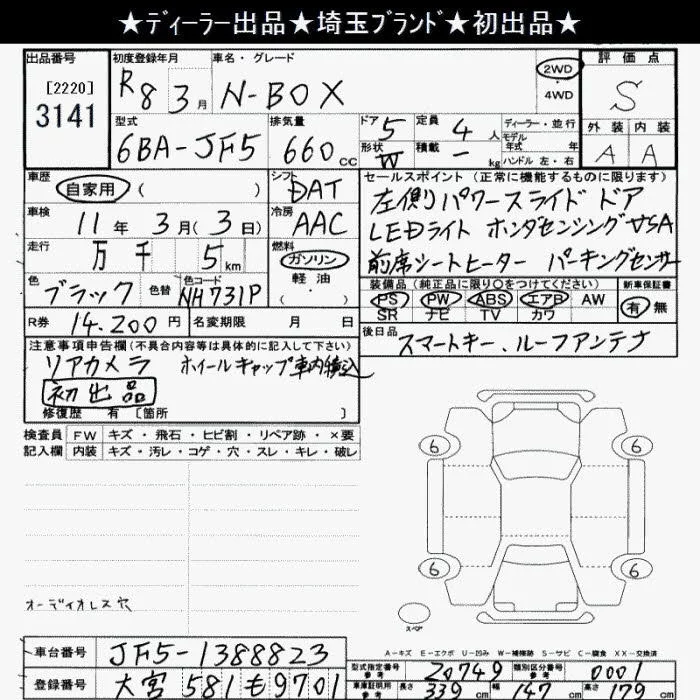 ★ディーラー出品★埼玉ブランド★初出品★
出品番号 初度登録年月 車名・グレード 評価点
[2220] 3141 R8 3月 N-BOX 2WD ・ 4WD S
型式 排気量 ドア 定員 ディーラー・並行 外装 内装
6BA-JF5 660cc 5 4人 モデル年式 年 A A
形状 W 積載 - kg ハンドル 左・右
車歴 自家用 ( ) シフト DAT セールスポイント(正常に機能するものに限ります)
車検 11年3月(3日) 冷房 AAC 左側パワースライドドア
LEDライト ホンダセンシング サSA
走行 万 千 5km 燃料 ガソリン 前席シートヒーター パーキングセンサ
軽油 ( ・ )
色 ブラック 色替 色コード NH731P 装備品(純正品に限り○をつけてください) 新車保証書
PS PW ABS エアB AW 有 無
SR ナビ TV カワ
R券 14,200円 名変期限 月 日 後日品 スマートキー、ルーフアンテナ
注意事項申告欄(不具合内容等は具体的に記入して下さい)
リアカメラ ホイールキャップ車内積込
初出品
修復歴 有 [箇所 ]
検査員 FW キズ・飛石・ヒビ割・リペア跡・×要
記入欄 内装 キズ・汚レ・コゲ・穴・スレ・キレ・破レ
6 6
6 6
オーディオレス穴
スペア
A-キズ E-エクボ U-凹み W-補修跡 S-サビ C-腐食 XX-交換済
車台番号 JF5-1388823 型式指定番号 参考 20749 類別区分番号 参考 0001
登録番号 大宮 581 も 9701 車庫証明用 参考 長さ 339cm 幅 147cm 高さ 179cm